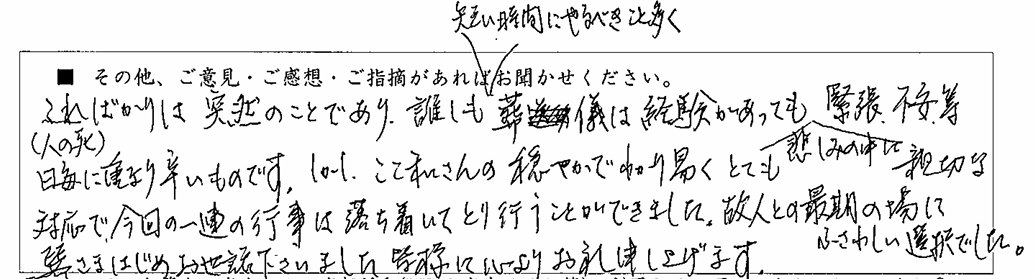 短い時間にやるべきこと多く
■ その他、ご意見・ご感想・ご指摘があればお聞かせください。
こればかりは突然のことであり、誰しも葬儀は経験があっても緊張、不安、等
(人の死)
悲しみの中に
日毎に重なり辛いものです。しかし、さんの穏やかでわかり易くとても親切な
対応で、今回の一連の行事は落ち着いてとり行うことができました。故人との最期の場に
ふさわしい選択でした。
さまはじめお世話下さいました皆様に心よりお礼申し上げます。